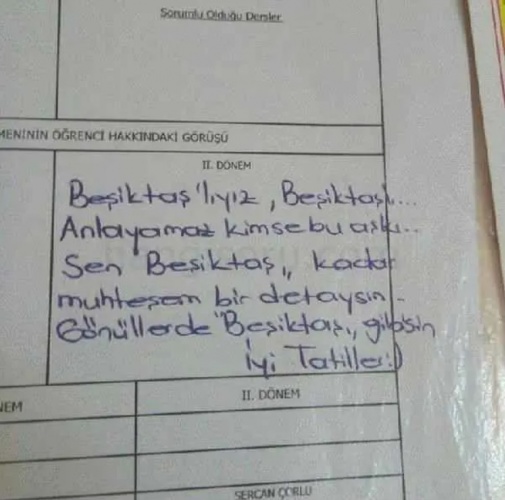 Sorumlu Olduğu Dersler
MENİNİN ÖĞRENCİ HAKKINDAKİ GÖRÜŞÜ
II. DÖNEM
Beşiktaş'lıyız, Beşiktaşlı...
Anlayamaz kimse bu aşkı...
Sen "Beşiktaş,, kadar
muhteşem bir detaysın -
Gönüllerde "Beşiktaş,, gibisin
İyi Tatiller:)
NEM
II. DÖNEM
SERCAN ÇORLU